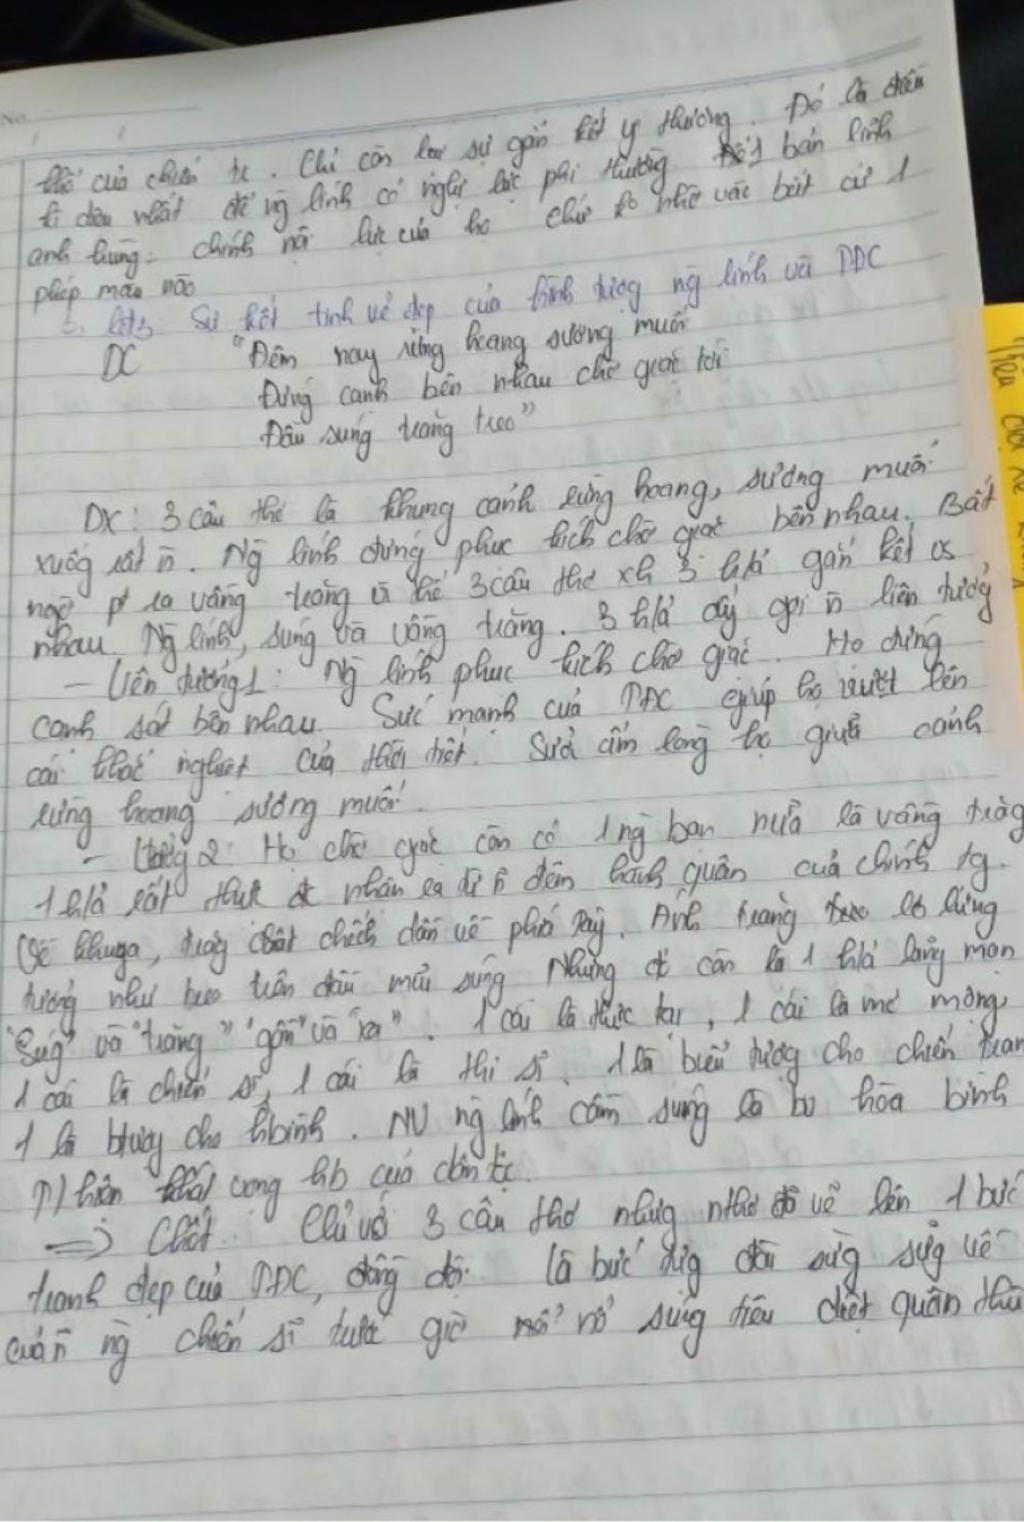 No.
khổ của chiến tr. Chỉ còn lại sự gắn kết y thương. Đó là điều
kì diệu nhất để ng lính có nghị lực phi thường 1 bản lĩnh
anh hùng: chính nội lực của họ chứ ko nhờ vào bất cứ 1
phép màu nào
Sự kết tinh vẻ đẹp của hình tượng ng lính và TĐC
DC "Đêm nay rừng hoang sương muối
Đứng cạnh bên nhau chờ giặc tới
Đầu súng trăng treo"
DX: 3 câu thơ là khung cảnh rừng hoang, sương muối
xuống rất n. Ng lính đứng phục kích chờ giặc bên nhau. Bất
ngờ pt ra vầng trăng vì thế 3 câu thơ xh 3 h/ả gắn kết vs
nhau. Ng lính, súng và vầng trăng. 3 h/ả ấy gợi n liên tưởng
- Liên tưởng 1: Ng lính phục kích chờ giặc. Họ đứng
cạnh sát bên nhau. Sức mạnh của TĐC giúp họ vượt lên
cái khắc nghiệt của thời tiết. Sưởi ấm lòng họ giữa cảnh
rừng hoang sương muối.
- Ltưởng 2: Họ chờ giặc còn có 1 ng bạn nữa là vầng trăng
1 h/ả rất thực đc nhận ra từ n đêm hành quân của chính tg.
Về khuya, trăng chếch dần về phía Tây. Ánh trăng lơ lửng
tưởng như treo trên đầu mũi súng Nhưng đó còn là 1 h/ả lãng mạn
"Súg" và "trăng" "gần" và "xa". 1 cái là thực tại, 1 cái là mơ mộng,
1 cái là chiến sĩ, 1 cái là thi sĩ. 1 là biểu tượng cho chiến tran
1 là btượg cho hbình. NV ng lính cầm súng là bv hòa bình
T/hiện khát vọng hb của dân tộc.
=> Chốt: Chỉ với 3 câu thơ nhưng nthơ đã vẽ lên 1 bức
tranh đẹp của TĐC, đồng đội. Là bức tượg đài sừg sữg về
của n ng chiến sĩ trước giờ nổ súng tiêu diệt quân thù